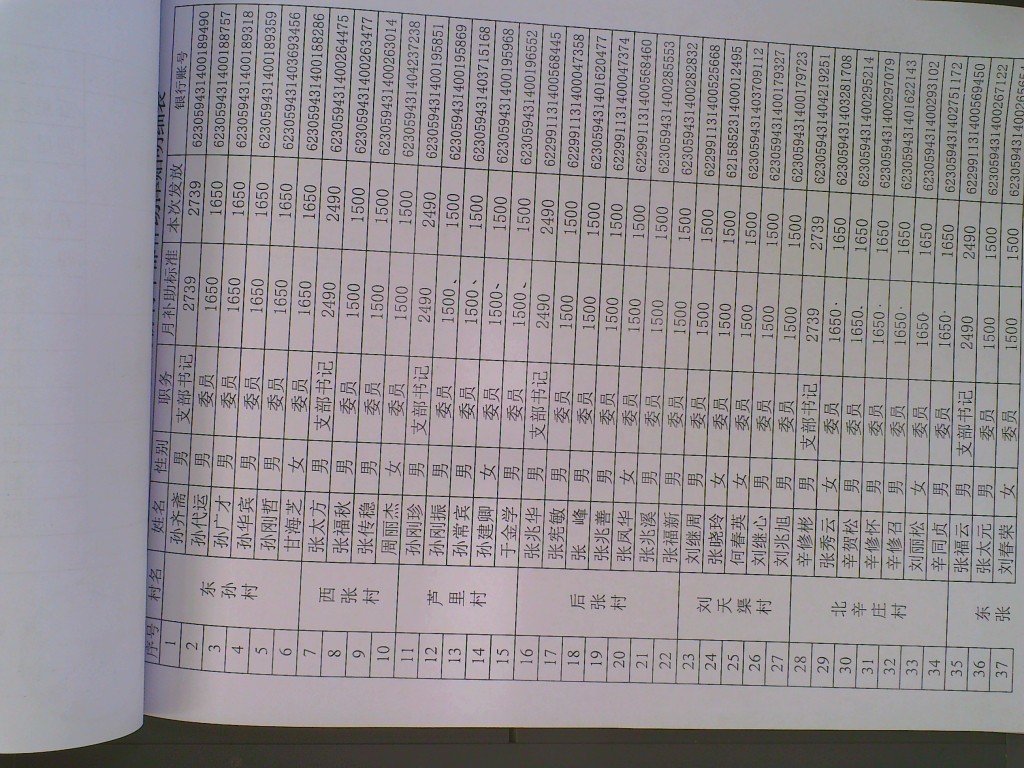 序号 村名 姓名 性别 职务 月补助标准 本次发放 银行账号
1 东孙村 孙齐斋 男 支部书记 2739 2739 623059431400189490
2 孙代运 男 委员 1650 1650 623059431400188757
3 孙广才 男 委员 1650 1650 623059431400189318
4 孙华宾 男 委员 1650 1650 623059431400189359
5 孙刚哲 男 委员 1650 1650 623059431403693456
6 甘海芝 女 委员 1650 1650 623059431400188286
7 西张村 张太方 男 支部书记 2490 2490 623059431400264475
8 张福秋 男 委员 1500 1500 623059431400263477
9 张传稳 男 委员 1500 1500 623059431400263014
10 周丽杰 女 委员 1500 1500 623059431404237238
11 芦里村 孙刚珍 男 支部书记 2490 2490 623059431400195851
12 孙刚振 男 委员 1500、 1500 623059431400195869
13 孙常宾 男 委员 1500、 1500 623059431403715168
14 孙建卿 女 委员 1500、 1500 623059431400195968
15 于金学 男 委员 1500、 1500 623059431400196552
16 后张村 张兆华 男 支部书记 2490 2490 622991131400568445
17 张宪敏 男 委员 1500 1500 622991131400047358
18 张 峰 男 委员 1500 1500 623059431401620477
19 张兆善 男 委员 1500 1500 622991131400047374
20 张凤华 女 委员 1500 1500 622991131400568460
21 张兆溪 男 委员 1500 1500 623059431400285553
22 张福新 男 委员 1500 1500 623059431400282832
23 刘天渠村 刘继周 男 委员 1500 1500 622991131400525668
24 张晓玲 女 委员 1500 1500 621585231400012495
25 何春英 女 委员 1500 1500 623059431403709112
26 刘继心 男 委员 1500 1500 623059431400179327
27 刘兆旭 男 委员 1500 1500 623059431400179723
28 北辛庄村 辛修彬 男 支部书记 2739 2739 623059431404219251
29 张秀云 女 委员 1650· 1650 623059431403281708
30 辛贺松 男 委员 1650· 1650 623059431400295214
31 辛修怀 男 委员 1650· 1650 623059431400297079
32 辛修召 男 委员 1650· 1650 623059431401622143
33 刘丽松 女 委员 1650· 1650 623059431400293102
34 辛同贞 男 委员 1650· 1650 623059431402751172
35 东张 张福云 男 支部书记 2490 2490 622991131400569450
36 张太元 男 委员 1500 1500 623059431400267122
37 刘春荣 女 委员 1500 1500